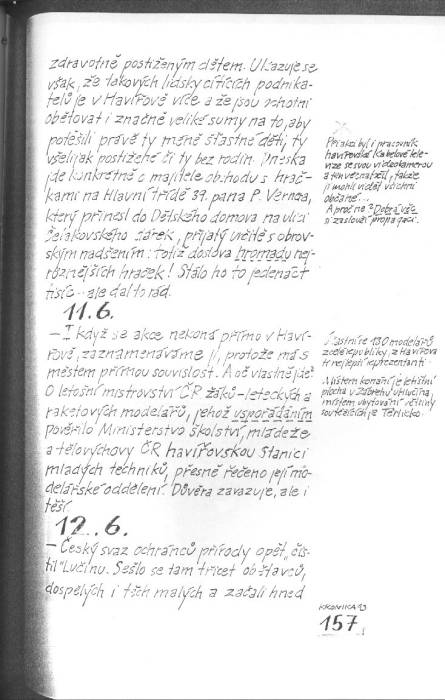 zdravotně postiženým dětem. Ukazuje se
však, že takových lidsky cítících podnika-
telů je v Havířově více a že jsou ochotni
obětovat i značně veliké sumy na to, aby
potěšili právě ty méně šťastné děti, ty
všelijak postižené či ty bez rodin. Dneska
jde konkrétně o majitele obchodu s hrač-
kami na Hlavní třídě 39, pana P.
který přinesl do Dětského domova na ulici
Čelakovského dárek, přijatý určitě s obrov-
ským nadšením: totiž doslova hromadu nej-
různějších hraček! Stálo ho to jedenáct
tisíc... ale dal to rád.
11.6.
— I když se akce nekoná přímo v Haví-
řově, zaznamenáváme ji, protože má s
městem přímou souvislost. A oč vlastně jde?
O letošní mistrovství ČR žáků-leteckých a
raketových modelářů, jehož uspořádáním
pověřilo Ministerstvo školství, mládeže
a tělovýchovy ČR havířovskou Stanici
mladých techniků, přesně řečeno její mo-
delářské oddělení. Důvěra zavazuje, ale i
těší.
12.6.
— Český svaz ochránců přírody opět „čis-
til" Lučinu. Sešlo se tam třicet obětavců,
dospělých i těch malých a začali hned
Při akci byl i pracovník
havířovské Kabelové tele-
vize se svou videokamerou
a ten vše natočil, takže
ji mohli vidět všichni
občané...
A proč ne? Dobrá věc
si zaslouží propagaci.
Účastní se 130 modelářů
z celé republiky, z Havířova
tři nejlepší reprezentanti.
Místem konání je letištní
plocha v Zábřehu u Hlučína,
místem ubytování většiny
soutěžících je Těrlicko.
KRONIKA 93
157